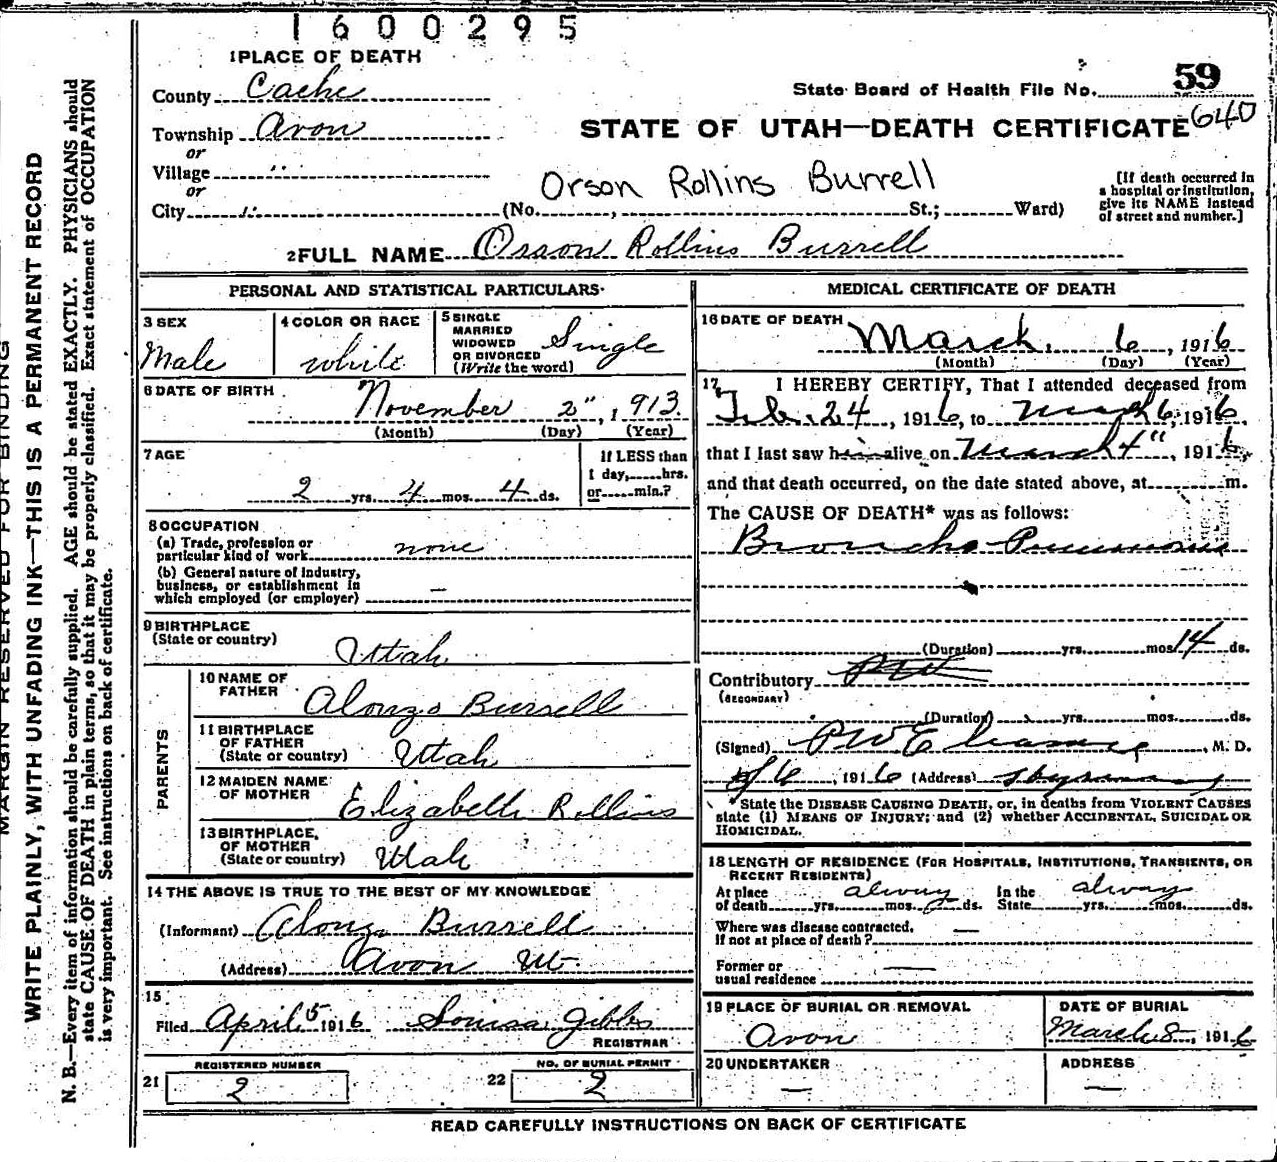 1600295
1 PLACE OF DEATH
County Cache
State Board of Health File No. 59
Township Avon
STATE OF UTAH—DEATH CERTIFICATE 640
or
Village "
or
Orson Rollins Burrell
City " (No. , St.; Ward)
[If death occurred in
a hospital or institution,
give its NAME instead
of street and number.]
2 FULL NAME Orson Rollins Burrell
PERSONAL AND STATISTICAL PARTICULARS
3 SEX
Male
4 COLOR OR RACE
White
5 SINGLE
MARRIED
WIDOWED
OR DIVORCED
(Write the word)
Single
6 DATE OF BIRTH
November 2", 1913
(Month) (Day) (Year)
7 AGE
2 yrs. 4 mos. 4 ds.
If LESS than
1 day, hrs.
or min.?
8 OCCUPATION
(a) Trade, profession or
particular kind of work none
(b) General nature of industry,
business, or establishment in
which employed (or employer) —
9 BIRTHPLACE
(State or country)
Utah
PARENTS
10 NAME OF
FATHER
Alonzo Burrell
11 BIRTHPLACE
OF FATHER
(State or country)
Utah
12 MAIDEN NAME
OF MOTHER
Elizabeth Rollins
13 BIRTHPLACE
OF MOTHER
(State or country)
Utah
14 THE ABOVE IS TRUE TO THE BEST OF MY KNOWLEDGE
(Informant) Alonzo Burrell
(Address) Avon Ut
15
Filed April 5 1916 Louisa Gibbs
REGISTRAR
REGISTERED NUMBER
21 2
NO. OF BURIAL PERMIT
22 2
MEDICAL CERTIFICATE OF DEATH
16 DATE OF DEATH
March 6, 1916
(Month) (Day) (Year)
17 I HEREBY CERTIFY, That I attended deceased from
Feb. 24, 1916, to March 6, 1916,
that I last saw him alive on March 4", 1916,
and that death occurred, on the date stated above, at m.
The CAUSE OF DEATH* was as follows:
Broncho Pneumonia
(Duration) yrs. mos. 14 ds.
Contributory
(SECONDARY)
(Duration) yrs. mos. ds.
(Signed) , M. D.
1916 (Address)
*State the DISEASE CAUSING DEATH, or, in deaths from VIOLENT CAUSES
state (1) MEANS OF INJURY; and (2) whether ACCIDENTAL, SUICIDAL OR
HOMICIDAL.
18 LENGTH OF RESIDENCE (FOR HOSPITALS, INSTITUTIONS, TRANSIENTS, OR
RECENT RESIDENTS)
At place
of death always yrs. mos. ds.
In the
State always yrs. mos. ds.
Where was disease contracted,
If not at place of death? —
Former or
usual residence —
19 PLACE OF BURIAL OR REMOVAL
Avon
DATE OF BURIAL
March 8, 1916
20 UNDERTAKER
—
ADDRESS
—
READ CAREFULLY INSTRUCTIONS ON BACK OF CERTIFICATE
MARGIN RESERVED FOR BINDING
WRITE PLAINLY, WITH UNFADING INK—THIS IS A PERMANENT RECORD
N. B.—Every item of information should be carefully supplied. AGE should be stated EXACTLY. PHYSICIANS should
state CAUSE OF DEATH in plain terms, so that it may be properly classified. Exact statement of OCCUPATION
is very important. See instructions on back of certificate.